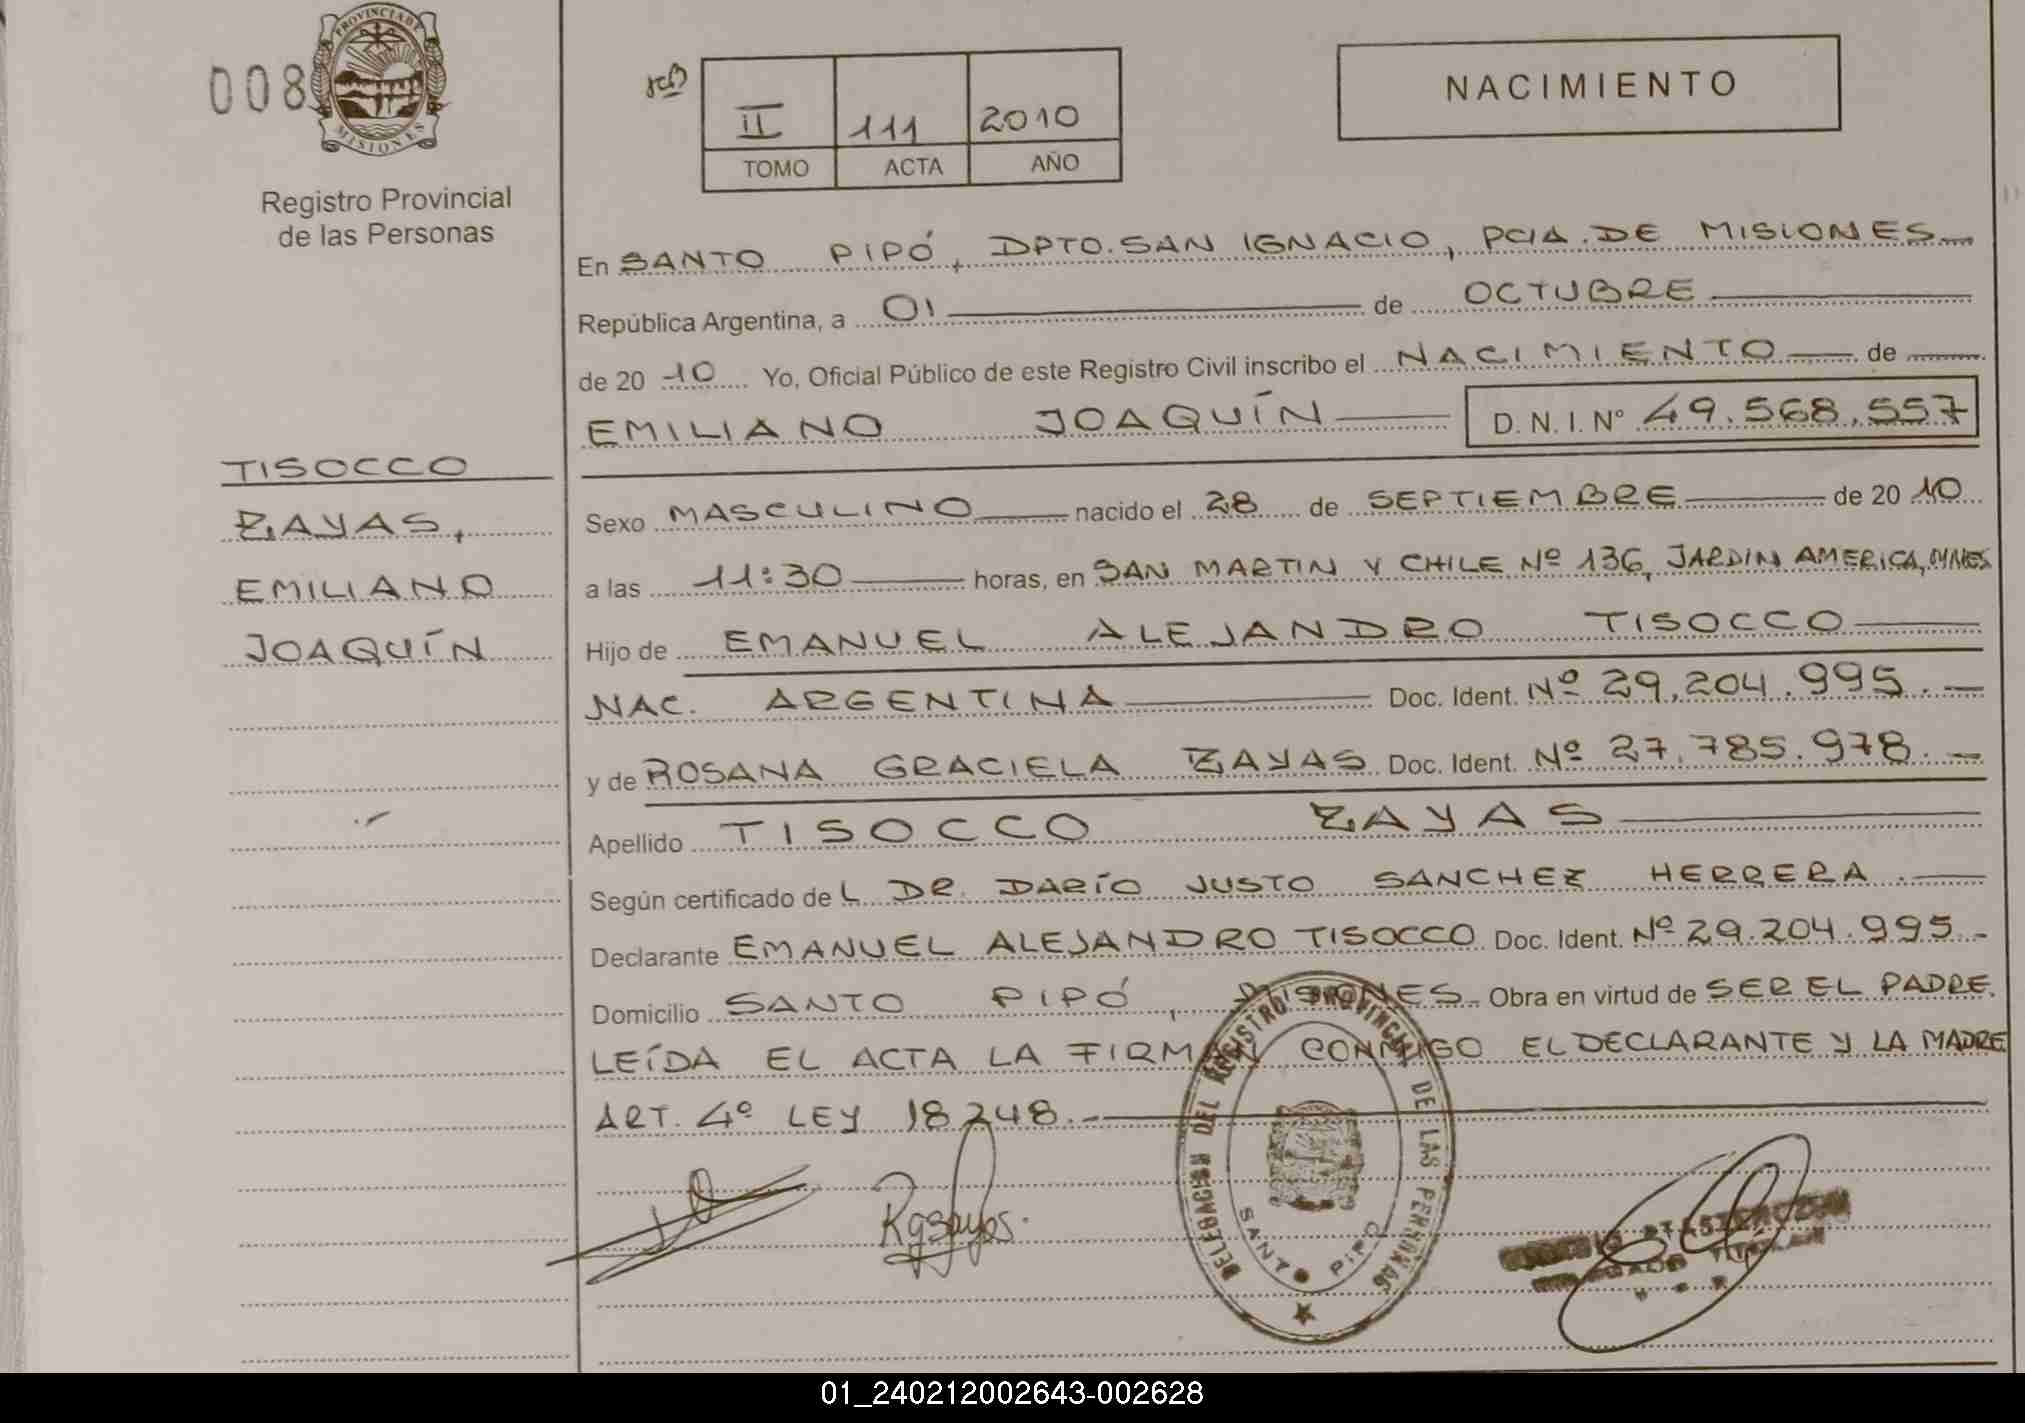 008
PROVINCIA DE
MISIONES
Registro Provincial
de las Personas
II 111 2010
TOMO ACTA AÑO
NACIMIENTO
En SANTO PIPÓ, DPTO. SAN IGNACIO, PCIA. DE MISIONES
República Argentina, a 01 de OCTUBRE
de 20 10 Yo, Oficial Público de este Registro Civil inscribo el NACIMIENTO de
EMILIANO JOAQUÍN D. N. I. Nº 49.568.557
TISOCCO
ZAYAS,
EMILIANO
JOAQUÍN
Sexo MASCULINO nacido el 28 de SEPTIEMBRE de 20 10
a las 11:30 horas, en SAN MARTIN Y CHILE Nº 136, JARDIN AMERICA, MNES
Hijo de EMANUEL ALEJANDRO TISOCCO
NAC. ARGENTINA Doc. Ident. Nº 29.204.995.-
y de ROSANA GRACIELA ZAYAS Doc. Ident. Nº 27.785.978.-
Apellido TISOCCO ZAYAS
Según certificado de L DR. DARÍO JUSTO SANCHEZ HERRERA.
Declarante EMANUEL ALEJANDRO TISOCCO Doc. Ident. Nº 29.204.995.-
Domicilio SANTO PIPÓ, MISIONES. Obra en virtud de SER EL PADRE.
LEÍDA EL ACTA LA FIRMAN CONMIGO EL DECLARANTE Y LA MADRE
ART. 4º LEY 18248.-
DELEGACION DEL REGISTRO PROVINCIAL DE LAS PERSONAS
SANTO PIPO
Rgzayas.
01_240212002643-002628